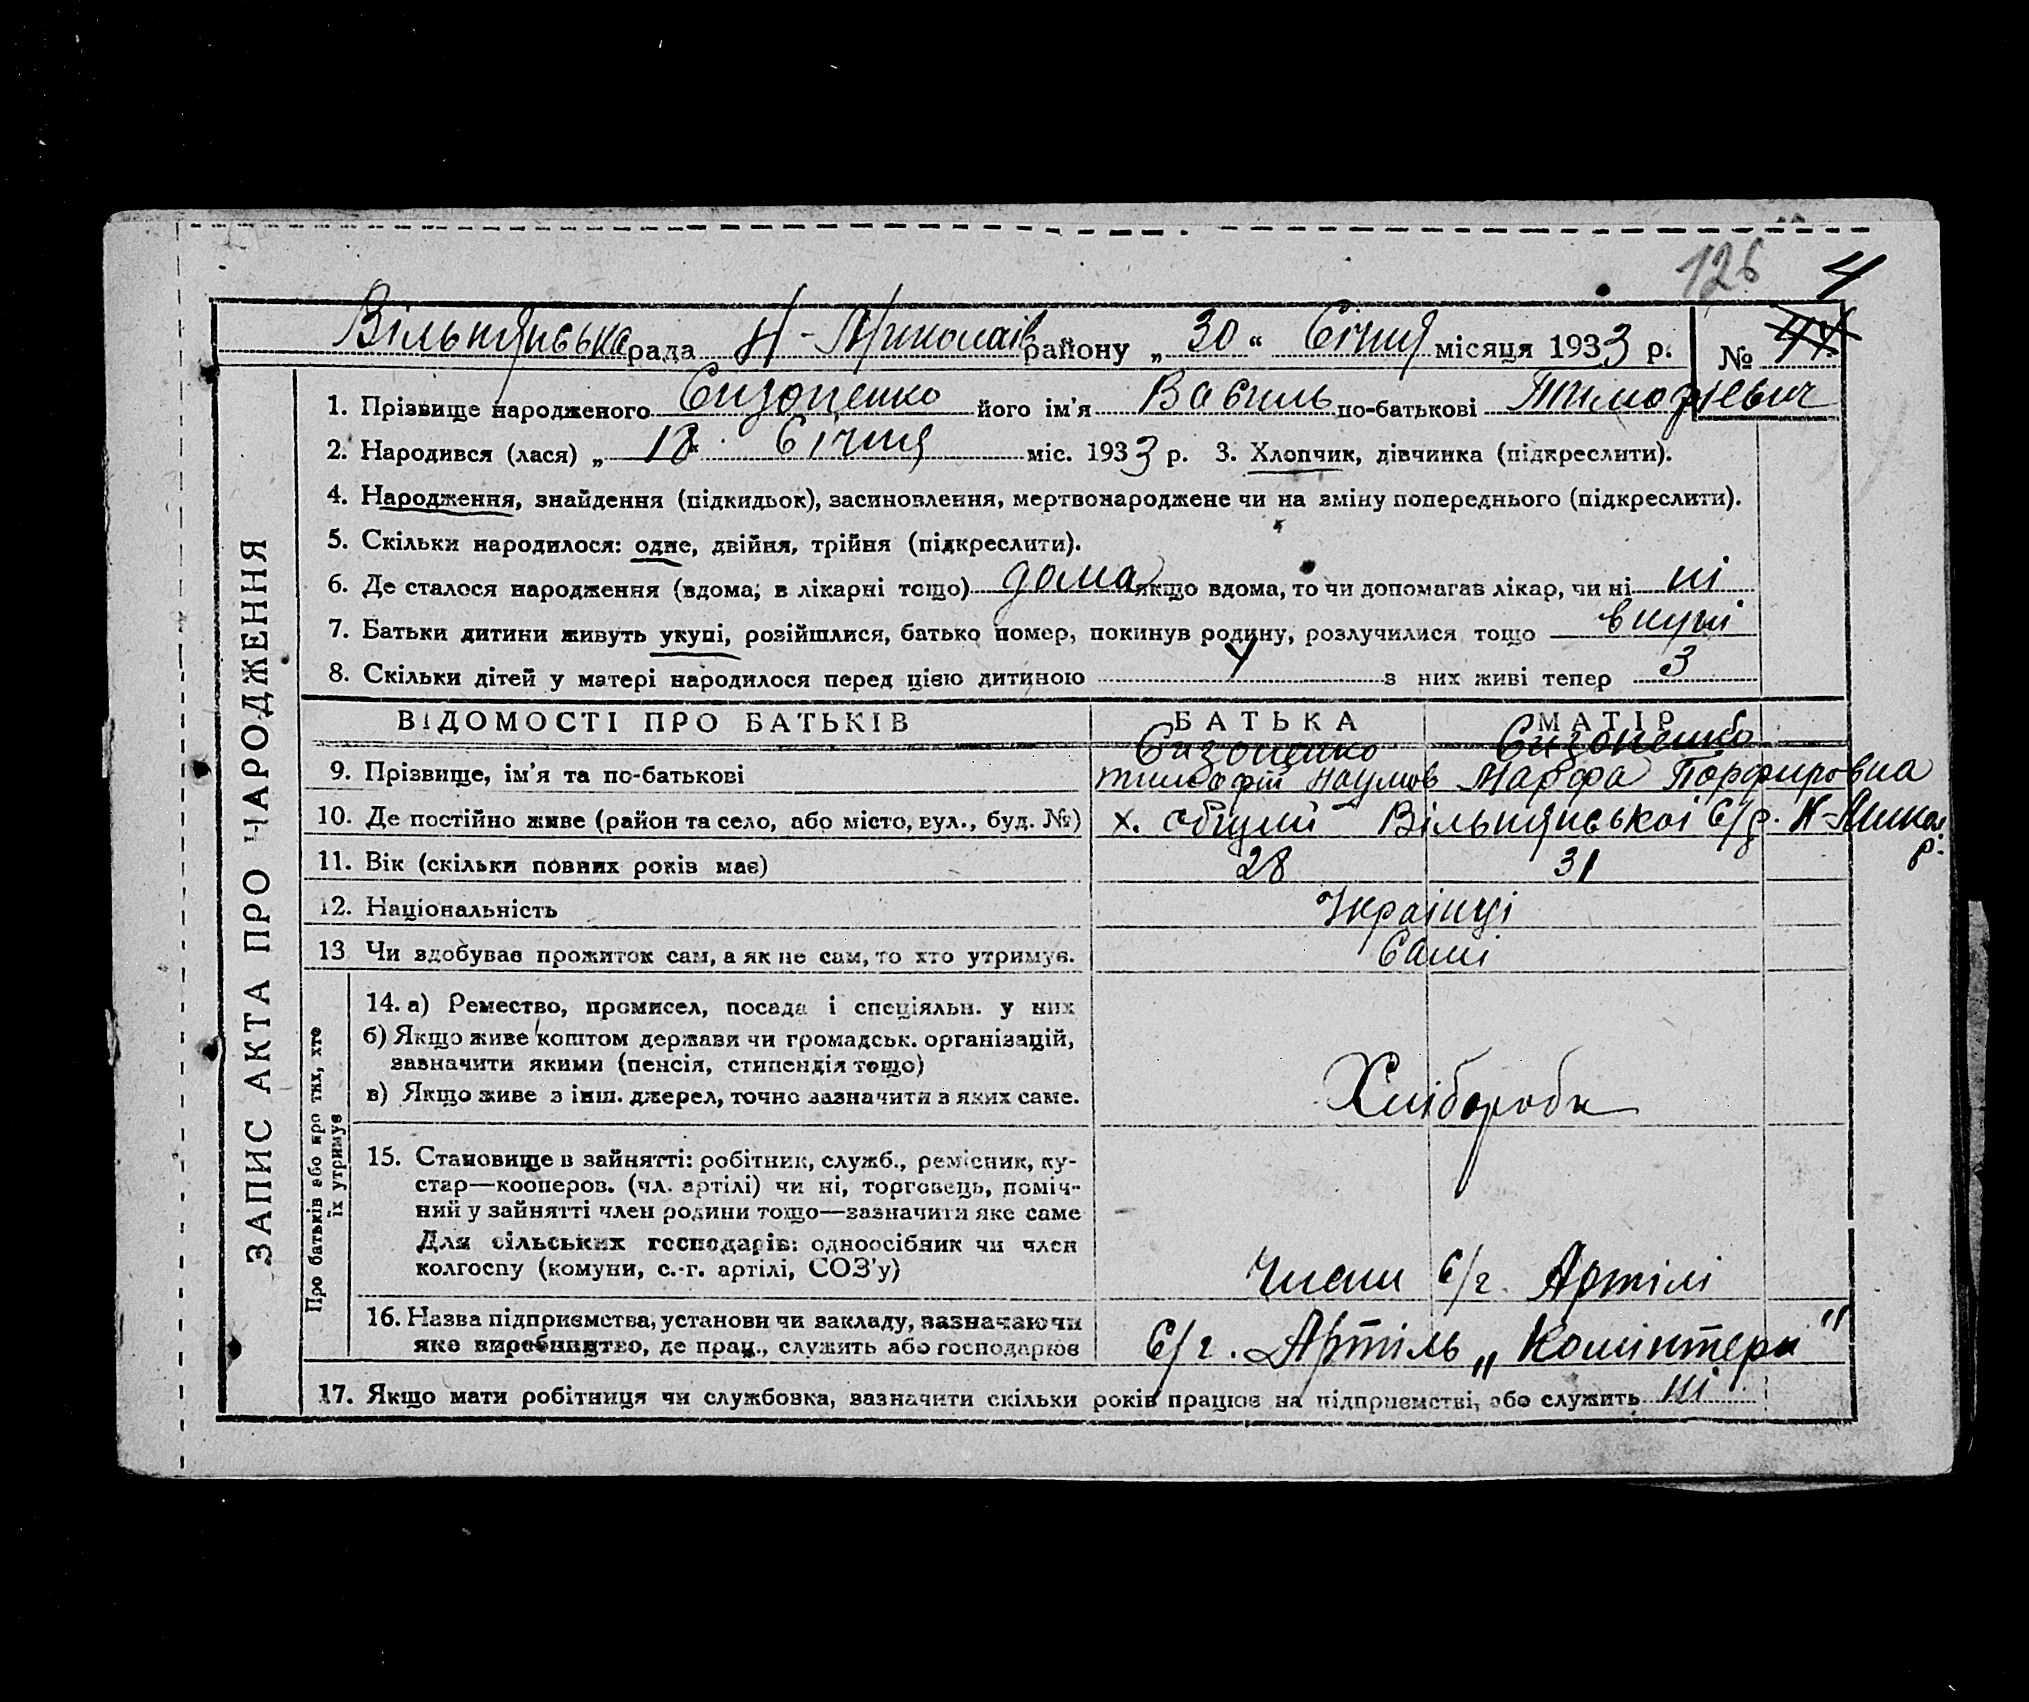 126 4
Вільнянська рада Н-Миколаїв району „30“ Січня місяця 1933 р. № 44
1. Прізвище народженого Сизоненко його ім'я Василь по-батькові Тимофієвич
2. Народився (лася) „ 18 Січня міс. 1933 р. 3. Хлопчик, дівчинка (підкреслити).
4. Народження, знайдення (підкидьок), засиновлення, мертвонароджене чи на зміну попереднього (підкреслити).
5. Скільки народилося: одне, двійня, трійня (підкреслити).
6. Де сталося народження (вдома, в лікарні тощо) дома якщо вдома, то чи допомагав лікар, чи ні ні
7. Батьки дитини живуть укупі, розійшлися, батько помер, покинув родину, розлучилися тощо вкупі
8. Скільки дітей у матері народилося перед цією дитиною 4 з них живі тепер 3
ВІДОМОСТІ ПРО БАТЬКІВ БАТЬКА МАТІР
Сизоненко Сизоненко
9. Прізвище, ім'я та по-батькові Тимофій Наумов Марфа Порфировна
10. Де постійно живе (район та село, або місто, вул., буд. №) х. общий Вільнянської С/р. Н-Микол.
р.
11. Вік (скільки повних років має) 28 31
12. Національність Українці
13 Чи здобуває прожиток сам, а як не сам, то хто утримує. Самі
14. а) Ремество, промисел, посада і спеціяльн. у них
б) Якщо живе коштом держави чи громадськ. організацій,
зазначити якими (пенсія, стипендія тощо)
в) Якщо живе з інш. джерел, точно зазначити з яких саме. Хлібороби
15. Становище в зайнятті: робітник, служб., ремісник, ку-
стар—кооперов. (чл. артілі) чи ні, торговець, поміч-
ний у зайнятті член родини тощо—зазначити яке саме
Для сільських господарів: одноосібник чи член
колгоспу (комуни, с.-г. артілі, СОЗ'у) Члени С/г. Артілі
16. Назва підприємства, установи чи закладу, зазначаючи
яке виробництво, де прац., служить або господарює С/г. Артіль „Комінтерн"
17. Якщо мати робітниця чи службовка, зазначити скільки років працює на підприємстві, або служить ні
ЗАПИС АКТА ПРО НАРОДЖЕННЯ
Про батьків або про тих, хто
їх утримує